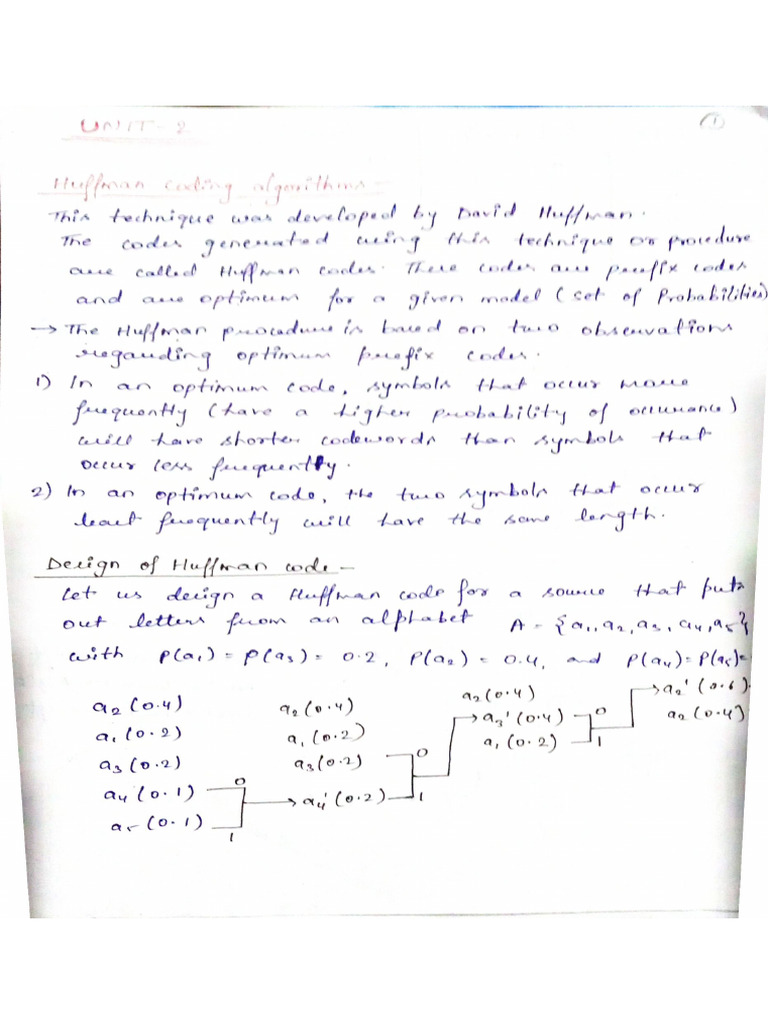 UNIT-2
1
Huffman coding algorithms-
This technique was developed by David Huffman.
The codes generated using this technique or procedure
are called Huffman codes. These codes are prefix codes
and are optimum for a given model (set of Probabilities)
→ The Huffman procedure is based on two observations
regarding optimum prefix codes.
1) In an optimum code, symbols that occur more
frequently (have a higher probability of occurance)
will have shorter codewords than symbols that
occur less frequently.
2) In an optimum code, the two symbols that occur
least frequently will have the same length.
Design of Huffman code-
Let us design a Huffman code for a source that puts
out letters from an alphabet A = {a1, a2, a3, a4, a5}
with P(a1) = P(a3) = 0.2, P(a2) = 0.4, and P(a4) = P(a5) =
a2 (0.4) a2 (0.4) a2 (0.4) → a2' (0.6)
a1 (0.2) a1 (0.2) → a3' (0.4) 0 a2 (0.4)
a3 (0.2) a3 (0.2) 0 a1 (0.2) 1
a4 (0.1) 0 → a4' (0.2) 1
a5 (0.1) 1